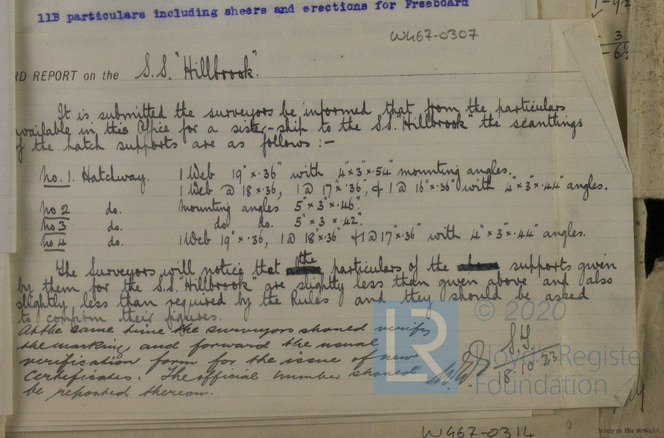 11B particulars including sheers and erections for Freeboard
W467-0307
RD REPORT on the S.S. "Hillbrook".
It is submitted the surveyors be informed that from the particulars
available in this Office for a sister-ship to the S.S. "Hillbrook" the scantlings
of the hatch supports are as follows :-
No. 1. Hatchway. 1 Web 19" × .36" with 4" × 3 × .54" mounting angles.
1 Web @ 18 × .36, 1 @ 17" × .36", & 1 @ 16" × .36" with 4" × 3" × .44" angles.
No 2 do. mounting angles 5" × 3" × .46".
No 3 do. do. do. 5" × 3 × .42".
No 4 do. 1 Web 19" × .36, 1 @ 18" × .36" & 1 @ 17" × .36 with 4" × 3" × .44" angles.
The Surveyors will notice that the particulars of the supports given
by them for the S.S. "Hillbrook" are slightly less than given above and also
slightly less than required by the Rules and they should be asked
to confirm their figures.
At the same time the surveyors should verify
the marking and forward the usual
verification form for the issue of new
Certificates. The official number should
be reported thereon.
18/10/23
LR
© 2020
Lloyd's Register
Foundation
W467-0314